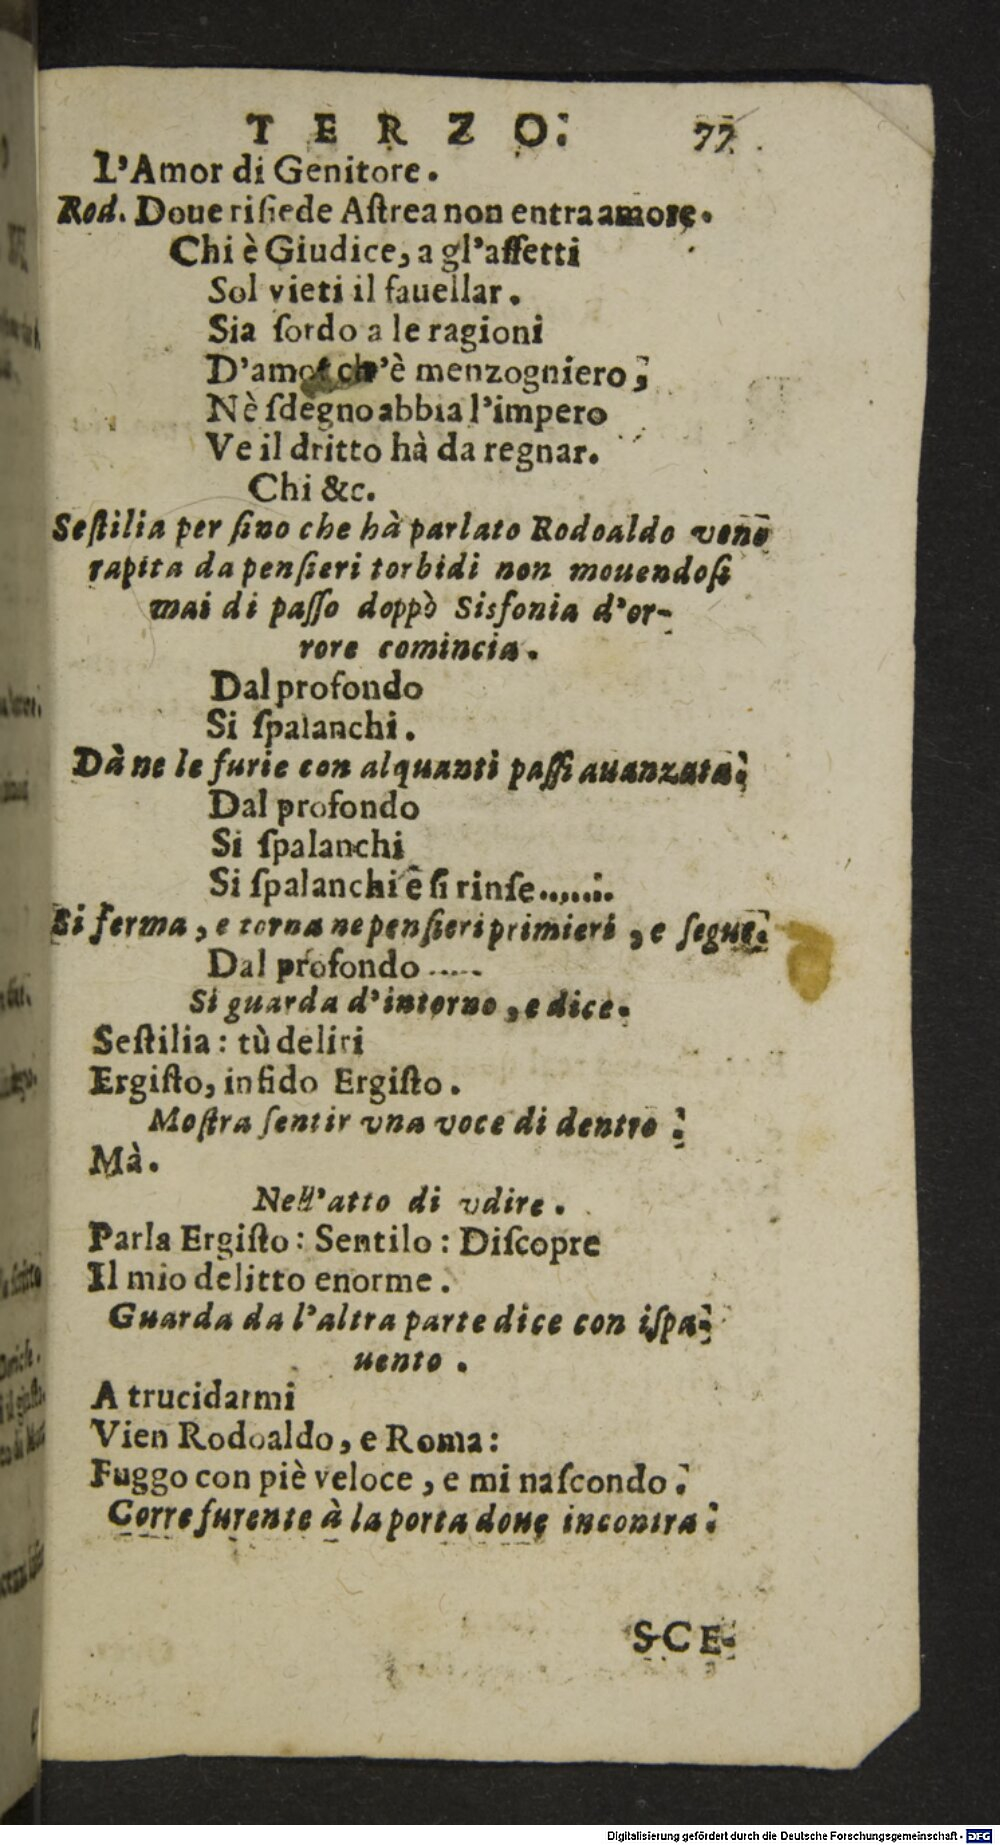 TERZO. 77
L'Amor di Genitore.
Rod. Doue risiede Astrea non entra amore.
Chi è Giudice, a gl'affetti
Sol vieti il fauellar.
Sia ſordo a le ragioni
D'amor ch'è menzogniero;
Nè ſdegno abbia l'impero
Ve il dritto hà da regnar.
Chi &c.
Seſtilia per ſino che hà parlato Rodoaldo vene
rapita da penſieri torbidi non mouendoſi
mai di paſſo doppò Sisfonia d'or-
rore comincia.
Dal profondo
Si ſpalanchi.
Dà ne le furie con alquanti paſſi auanzata.
Dal profondo
Si ſpalanchi
Si ſpalanchi e ſi rinſe......
Si ferma, e torna ne penſieri primieri, e ſegue.
Dal profondo .....
Si guarda d'intorno, e dice.
Seſtilia: tù deliri
Ergiſto, infido Ergiſto.
Moſtra ſentir vna voce di dentro.
Mà.
Nell'atto di vdire.
Parla Ergiſto: Sentilo: Diſcopre
Il mio delitto enorme.
Guarda da l'altra parte dice con iſpa-
uento.
A trucidarmi
Vien Rodoaldo, e Roma:
Fuggo con piè veloce, e mi naſcondo.
Corre furente à la porta doue incontra.
SCE-
Digitalisierung gefördert durch die Deutsche Forschungsgemeinschaft - DFG